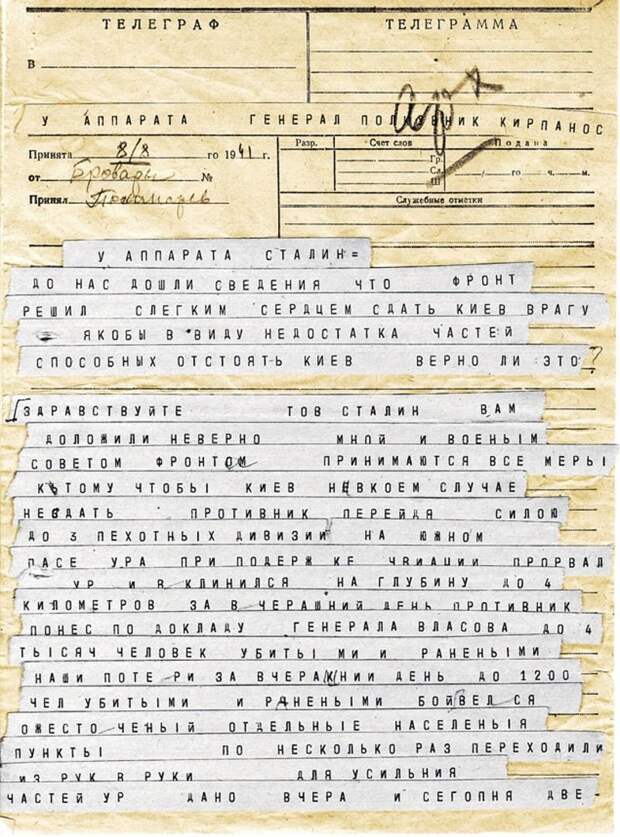 ТЕЛЕГРАФ
ТЕЛЕГРАММА
В
У АППАРАТА ГЕНЕРАЛ ПОЛКОВНИК КИРПАНОС
Принята 8/8 го 1941 г.
от Бровары №
Принял
Разр. Счет слов Подана
Гр.
Сл. / го ч. м.
Ш
Служебные отметки
У АППАРАТА СТАЛИН=
ДО НАС ДОШЛИ СВЕДЕНИЯ ЧТО ФРОНТ
РЕШИЛ СЛЕГКИМ СЕРДЦЕМ СДАТЬ КИЕВ ВРАГУ
ЯКОБЫ В ВИДУ НЕДОСТАТКА ЧАСТЕЙ
СПОСОБНЫХ ОТСТОЯТЬ КИЕВ ВЕРНО ЛИ ЭТО?
ЗДРАВСТВУЙТЕ ТОВ СТАЛИН ВАМ
ДОЛОЖИЛИ НЕВЕРНО МНОЙ И ВОЕНЫМ
СОВЕТОМ ФРОНТОМ ПРИНИМАЮТСЯ ВСЕ МЕРЫ
К ТОМУ ЧТОБЫ КИЕВ НЕВКОЕМ СЛУЧАЕ
НЕСДАТЬ ПРОТИВНИК ПЕРЕЙДЯ СИЛОЮ
ДО 3 ПЕХОТНЫХ ДИВИЗИЙ НА ЮЖНОМ
ПАСЕ УРА ПРИ ПОДЕРЖ КЕ ЧВИАЦИИ ПРОРВАЛ
УР И В КЛИНИЛСЯ НА ГЛУБИНУ ДО 4
КИЛОМЕТРОВ ЗА В ЧЕРАШНИЙ ДЕНЬ ПРОТИВНИК
ПОНЕС ПО ДОКЛАДУ ГЕНЕРАЛА ВЛАСОВА ДО 4
ТЫСЯЧ ЧЕЛОВЕК УБИТЫ МИ И РАНЕНЫМИ
НАШИ ПОТЕ РИ ЗА ВЧЕРА НИЙ ДЕНЬ ДО 1200
ЧЕЛ УБИТЫМИ И РАНЕНЫМИ БОЙВЕЛ СЯ
ОЖЕСТО ЧЕНЫЙ ОТДЕЛЬНЫЕ НАСЕЛЕНЫЯ
ПУНКТЫ ПО НЕСКОЛЬКО РАЗ ПЕРЕХОДИЛИ
ИЗ РУК В РУКИ ДЛЯ УСИЛЬНИЯ
ЧАСТЕЙ УР ДАНО ВЧЕРА И СЕГОПНЯ ДВЕ-